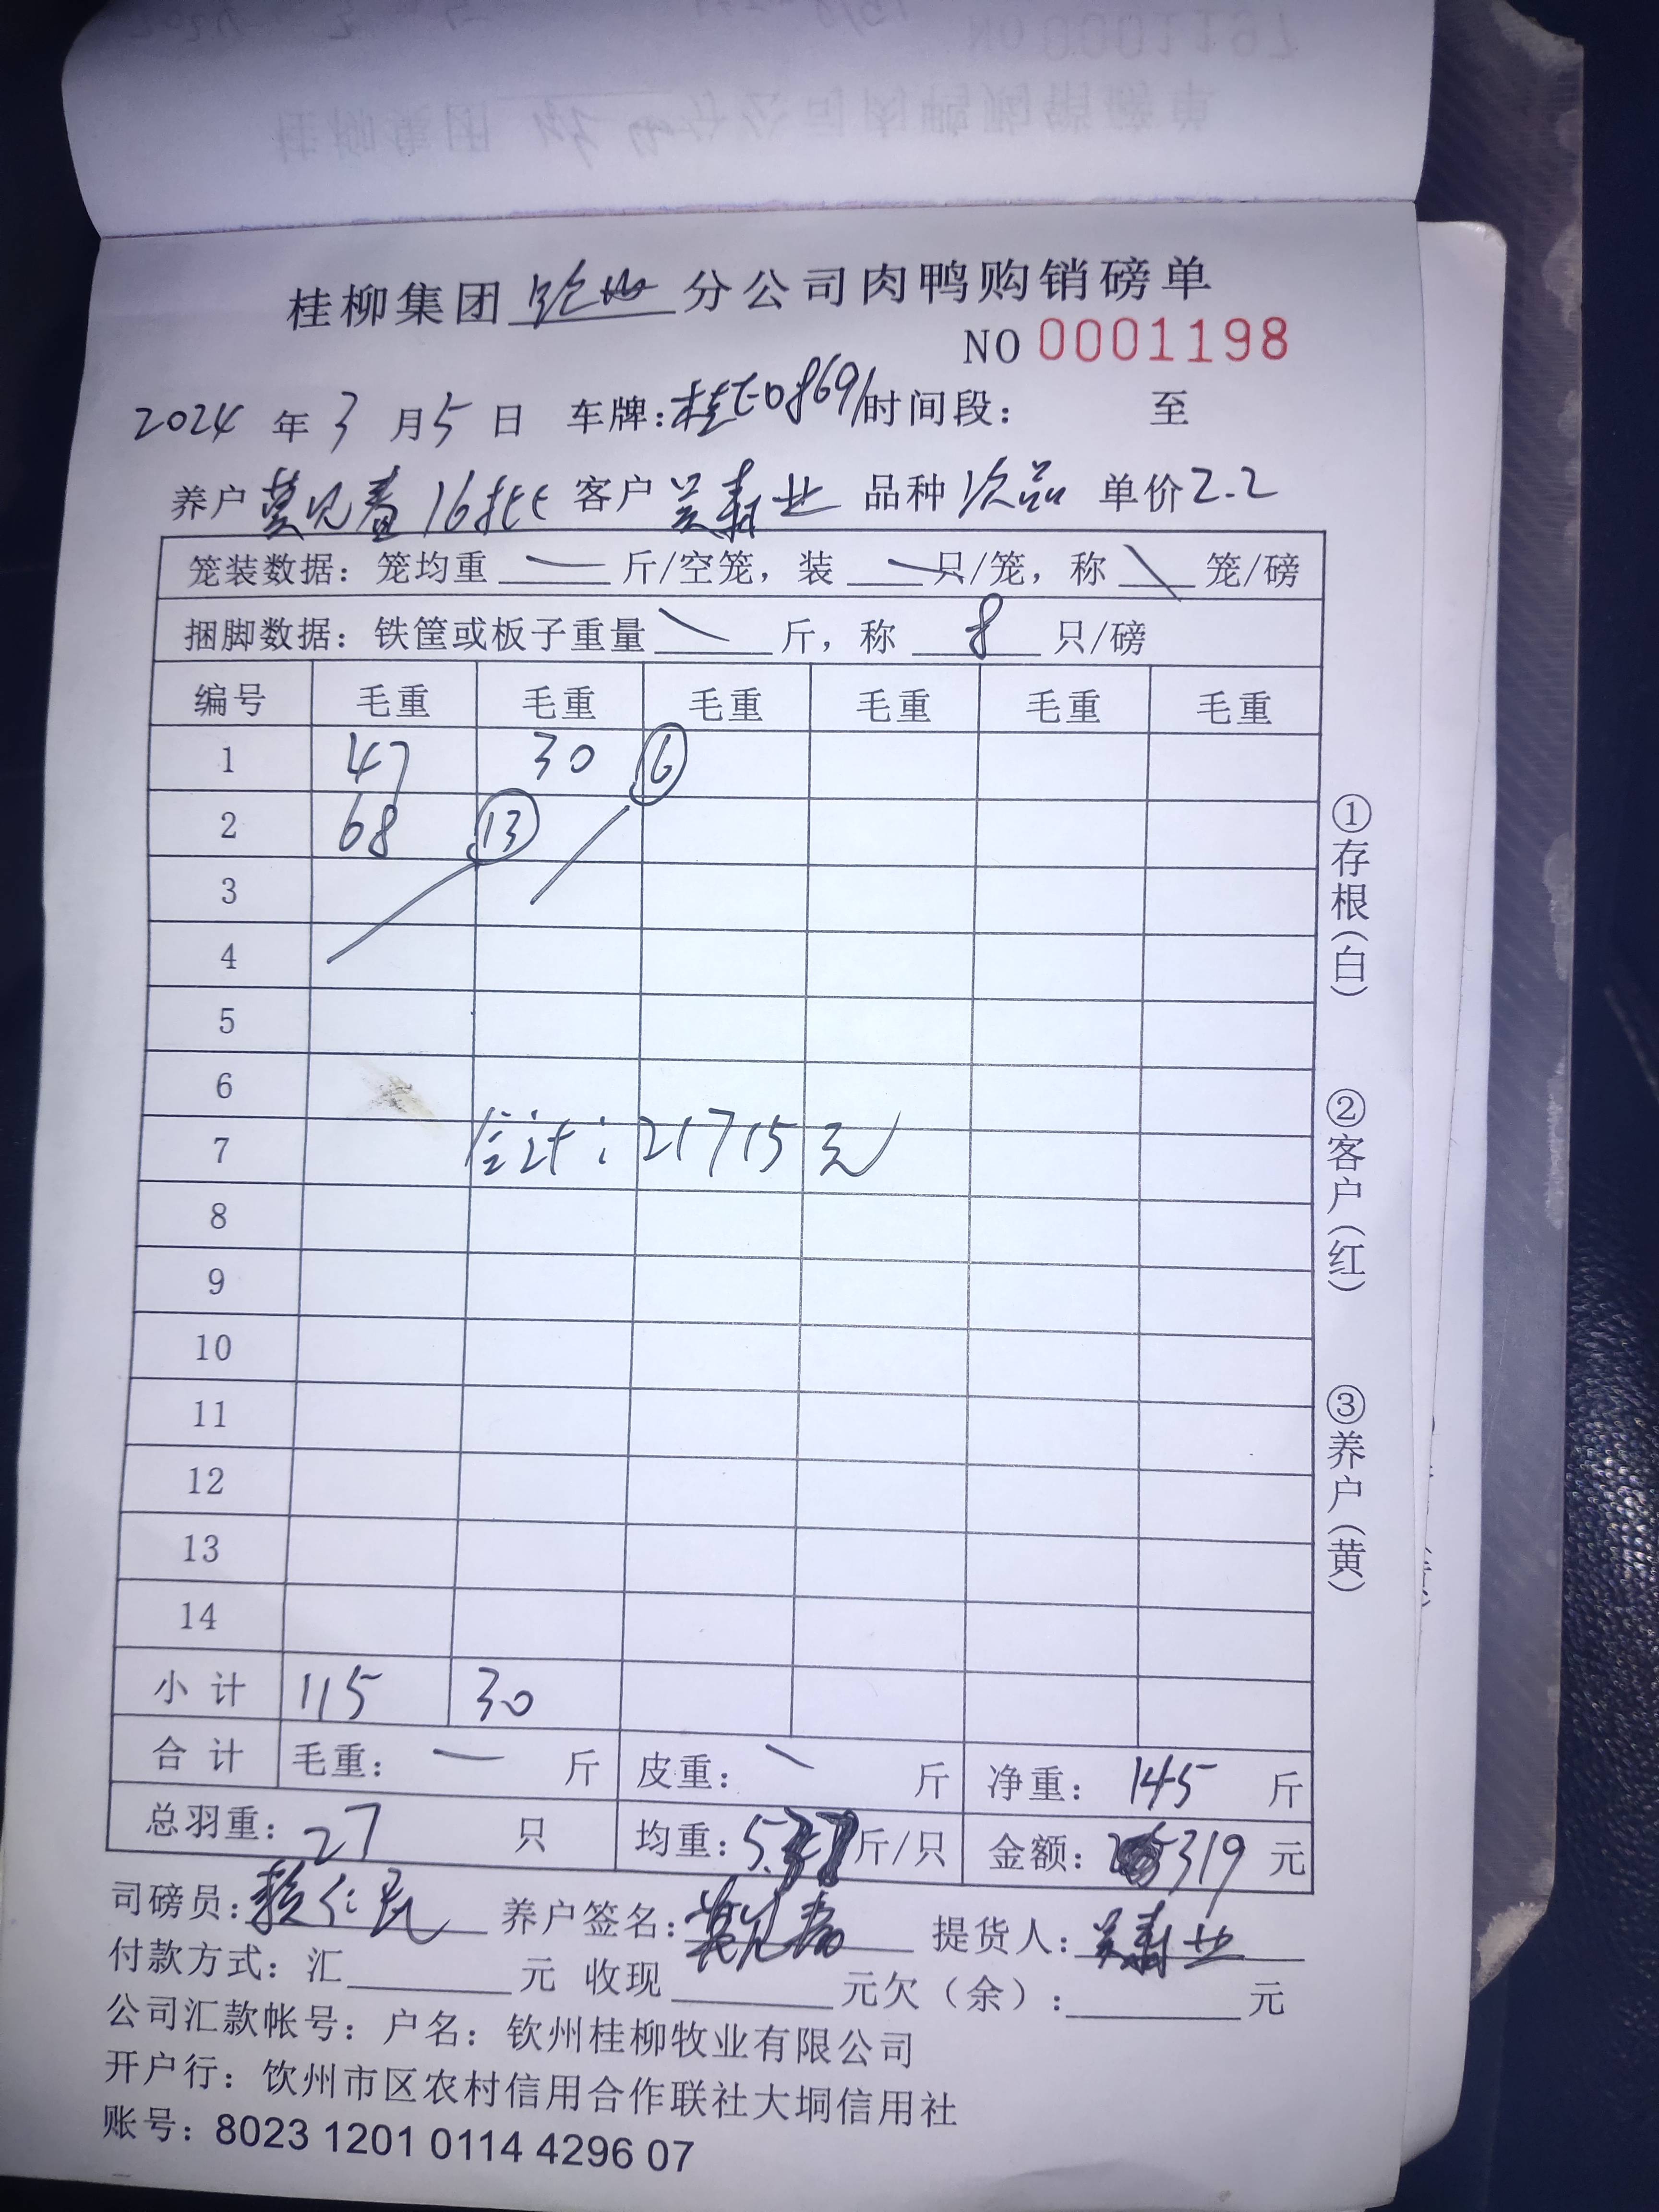 桂柳集团 分公司肉鸭购销磅单
NO 0001198
2024 年 3 月 5 日 车牌:桂E08691 时间段: 至
养户 16批 客户 吴寿业 品种 次品 单价 2.2
笼装数据: 笼均重 — 斤/空笼, 装 — 只/笼, 称 \ 笼/磅
捆脚数据: 铁筐或板子重量 \ 斤, 称 8 只/磅
编号 毛重 毛重 毛重 毛重 毛重 毛重
1 47 30 ⑥
2 68 ⑬
3
4
5
6
7 合计: 21715元
8
9
10
11
12
13
14
小 计 115 30
合 计 毛重: — 斤 皮重: \ 斤 净重: 145 斤
总羽重: 27 只 均重: 5.37 斤/只 金额: 319 元
司磅员: 赖仁民 养户签名: 提货人: 吴寿业
付款方式: 汇 元 收现 元欠(余): 元
公司汇款帐号: 户名: 钦州桂柳牧业有限公司
开户行: 钦州市区农村信用合作联社大垌信用社
账号: 8023 1201 0114 4296 07
①存根(白)
②客户(红)
③养户(黄)